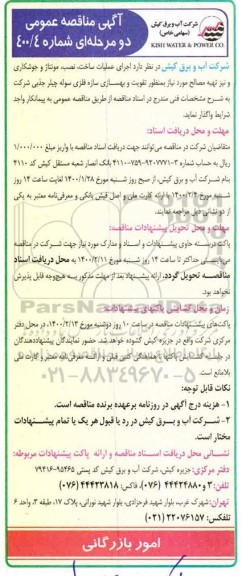 آگهی مناقصه عمومی
دو مرحله‌ای شماره ۴۰۰/۴
شرکت آب و برق کیش
(سهامی خاص)
KISH WATER & POWER CO.
شرکت آب و برق کیش در نظر دارد اجرای عملیات ساخت، نصب، مونتاژ و جوشکاری
و نیز تهیه مصالح مورد نیاز بمنظور تقویت و بهسازی سازه فلزی سوله چیلر جذبی شرکت
به شرح مشخصات فنی مندرج در اسناد مناقصه از طریق مناقصه عمومی به پیمانکار واجد
شرایط واگذار نماید.
مهلت و محل دریافت اسناد:
متقاضیان شرکت در مناقصه می‌توانند جهت دریافت اسناد مناقصه با واریز مبلغ ۱/۰۰۰/۰۰۰
ریال به حساب شماره بانک انصار شعبه مستقل کیش کد ۴۱۱۰
بنام شرکت آب و برق کیش، از صبح روز شنبه مورخ ۱۴۰۰/۱/۲۸ لغایت ساعت ۱۴ روز
شنبه مورخ با ارائه کارت ملی و اصل فیش بانکی و معرفی‌نامه معتبر به یکی
از دو نشانی ذیل مراجعه نمایند.
مهلت و محل تحویل پیشنهادات مناقصه:
پاکت دربسته حاوی پیشنهادات و اسناد و مدارک مورد نیاز جهت شرکت در مناقصه
حداکثر تا ساعت ۱۴ روز شنبه مورخ ۱۴۰۰/۲/۱۱ به محل دریافت اسناد
مناقصه تحویل گردد. ارائه پیشنهاد بعد از مهلت مذکور به هیچ‌وجه قابل پذیرش
نخواهد بود.
زمان و محل گشایش پاکتهای پیشنهادات:
پاکت‌های پیشنهادات مناقصه در ساعت ۱۰ روز دوشنبه مورخ ۱۴۰۰/۲/۱۳ در محل دفتر
مرکزی شرکت واقع در جزیره کیش گشوده خواهد شد. حضور نمایندگان پیشنهاددهندگان
در جلسه گشایش پاکتها با هماهنگی قبلی و ارائه معرفی‌نامه معتبر و کارت ملی
بلامانع است.
۰۲۱-۸۸۳۴۹۶۷۰-۵
نکات قابل توجه:
۱- هزینه درج آگهی در روزنامه برعهده برنده مناقصه است.
۲- شرکت آب و برق کیش در رد یا قبول هر یک یا تمام پیشنهادات
مختار است.
نشانی محل دریافت اسناد مناقصه و ارائه پاکت پیشنهادات مربوطه:
دفتر مرکزی: جزیره کیش، شرکت آب و برق کیش کد پستی ۹۵۴۶۵-۷۹۴۱۶
تلفن: ۲ و ۴۴۴۲۴۸۸۰ (۰۷۶)، فاکس: ۴۴۴۲۳۸۱۸ (۰۷۶)
تهران: شهرک غرب، بلوار شهید فرحزادی، بلوار شهید نورانی، پلاک ۱۷، طبقه ۳، واحد ۶
تلفکس: ۲۲۰۷۶۱۵۷ (۰۲۱)
امور بازرگانی